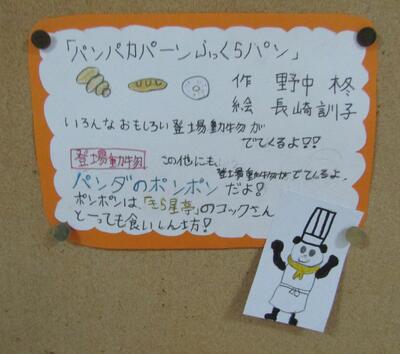 「パンパカパーンふっくらパン」
作 野中 柊
絵 長崎 訓子
いろんなおもしろい登場動物が
でてくるよ!!
登場動物 この他にも、登場動物がでてくるよ。
パンダのポンポンだよ!
ポンポンは、「きら星亭」のコックさん
とーっても食いしん坊!